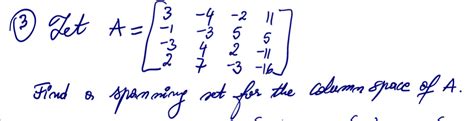 ③ Let A = [ 3 -4 -2 11
-1 -3 5 5
-3 4 2 -11
2 7 -3 -16 ]
Find a spanning set for the column space of A.